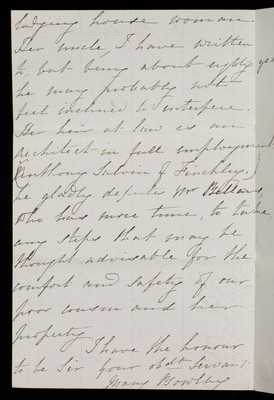 lodging house woman.
Her uncle, I have written
to, but being about eighty
he may probably not
feel inclined to interfere.
Her heir at law is an
architect in full employment,
(Anthony Salvin of Finchley.)
he gladly deputes Mr
who has more time, to take,
any steps that may be
thought advisable for the
comfort and safety of our
poor cousin and her
property
I have the honour
to be Sir your obdt Servant
Mary